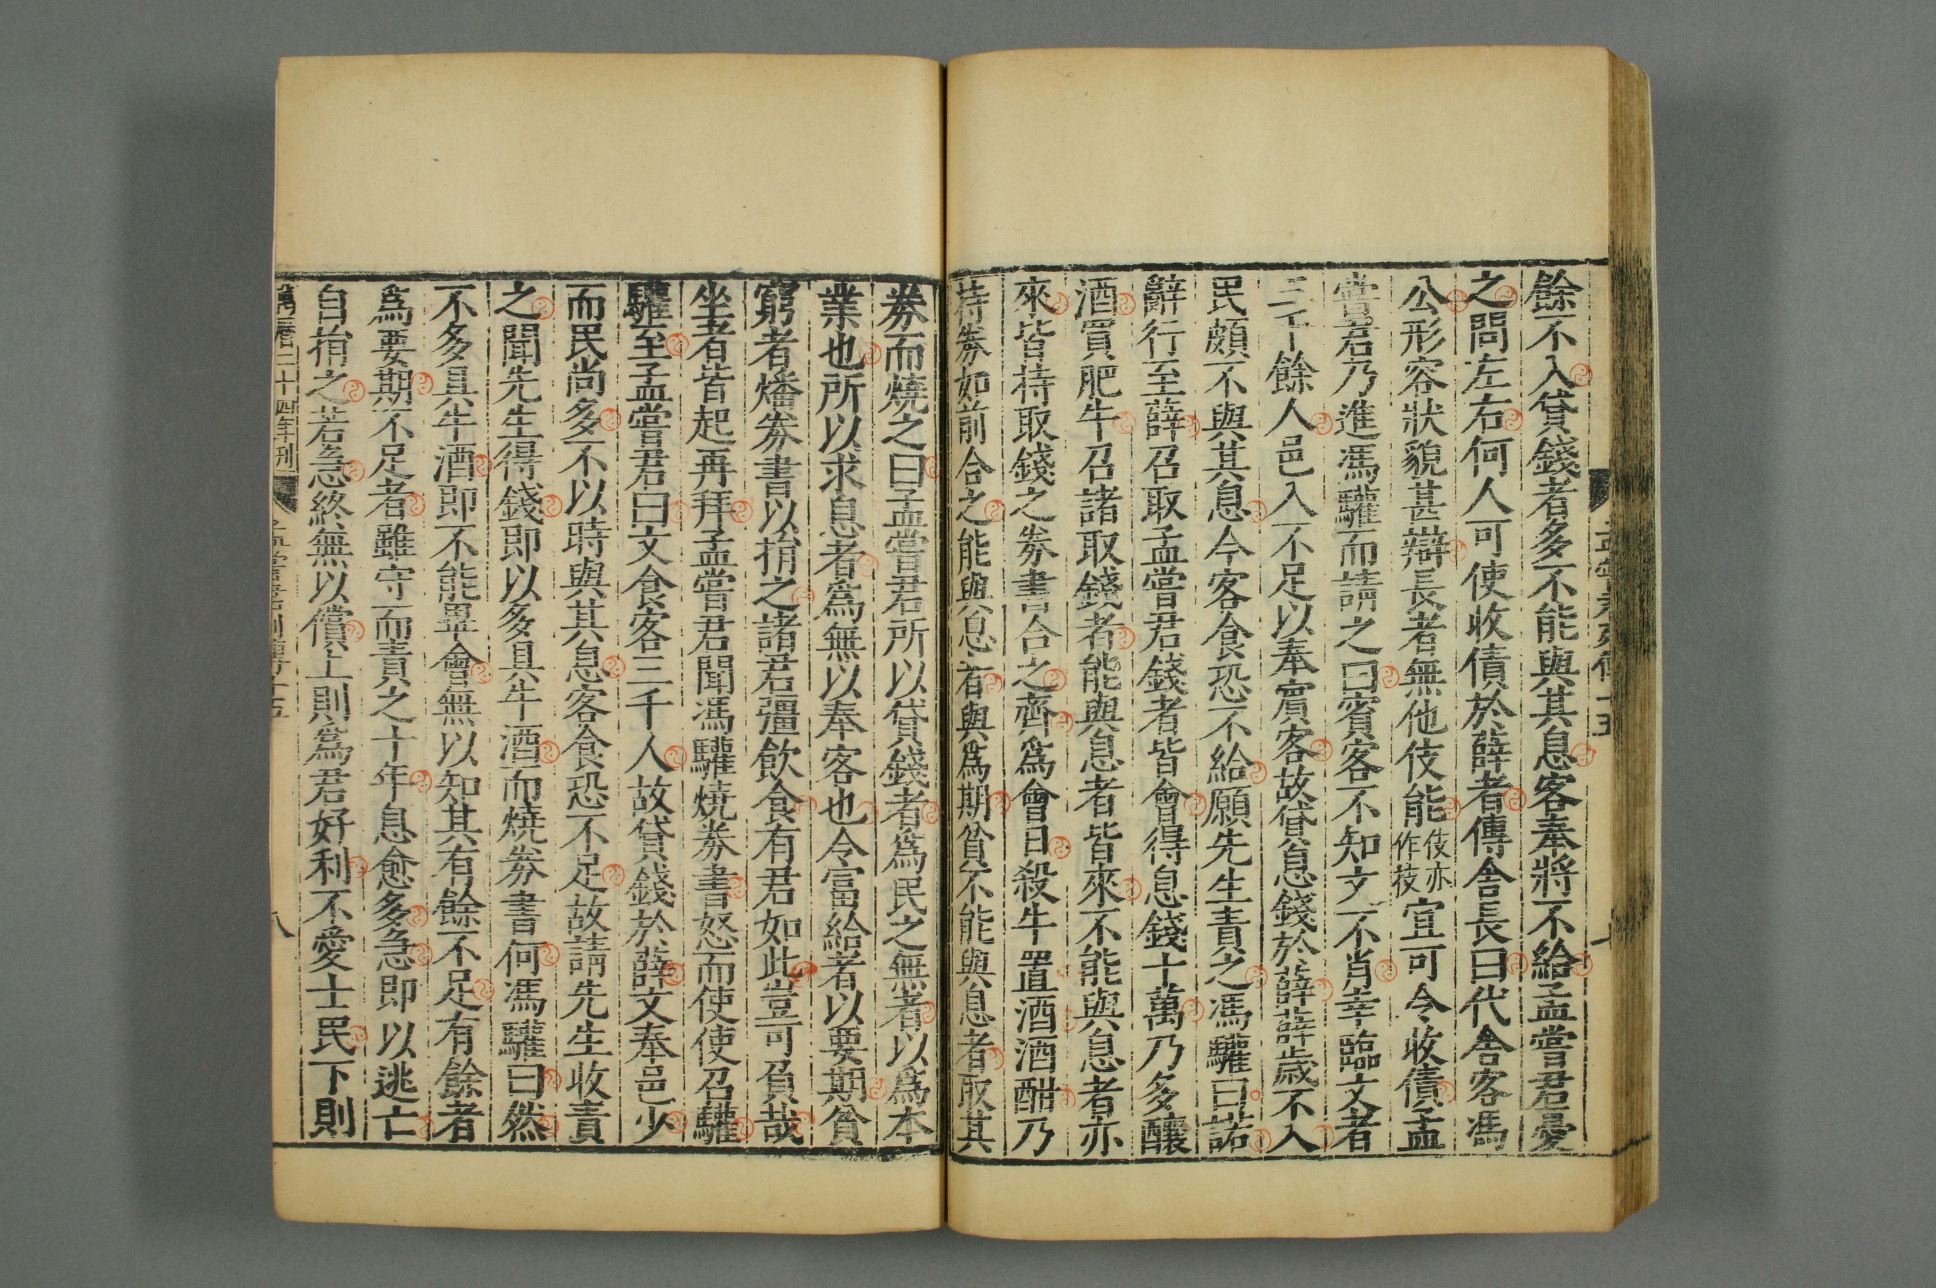 餘不入貸錢者多不能與其息客奉將不給孟嘗君憂
之問左右何人可使收債於薛者傳舍長曰代舍客馮
公形容狀貌甚辯長者無他伎能伎亦作技宜可令收債孟
嘗君乃進馮驩而請之曰賓客不知文不肖幸臨文者
三千餘人邑入不足以奉賓客故貸息錢於薛薛歲不入
民頗不與其息今客食恐不給願先生責之馮驩曰諾
辭行至薛召取孟嘗君錢者皆會得息錢十萬乃多釀
酒買肥牛召諸取錢者能與息者皆來不能與息者亦
來皆持取錢之券書合之齊為會日殺牛置酒酒酣乃
持券如前合之能與息者與為期貧不能與息者取其
券而燒之曰孟嘗君所以貸錢者為民之無者以為本
業也所以求息者為無以奉客也今富給者以要期貧
窮者燔券書以捐之諸君彊飲食有君如此豈可負哉
坐者皆起再拜孟嘗君聞馮驩燒券書怒而使使召驩
驩至孟嘗君曰文食客三千人故貸錢於薛文奉邑少
而民尚多不以時與其息客食恐不足故請先生收責
之聞先生得錢即以多具牛酒而燒券書何馮驩曰然
不多具牛酒即不能畢會無以知其有餘不足有餘者
為要期不足者雖守而責之十年息愈多急即以逃亡
自捐之若急終無以償上則為君好利不愛士民下則
萬曆二十四年刊 孟嘗君列傳十五 八